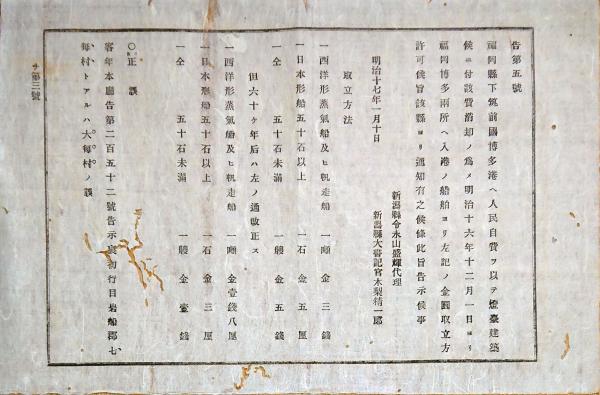 告第五號
福岡縣下筑前國博多港ヘ人民自費ヲ以テ燈臺建築
候ニ付該費消却ノ爲メ明治十六年十二月一日ヨリ
福岡博多兩所ヘ入港ノ船舶ヨリ左記ノ金圓取立方
許可候旨該縣ヨリ通知有之候條此旨告示候事
新潟縣令永山盛輝代理
明治十七年一月十日 新潟縣大書記官木梨精一郎
取立方法
一西洋形蒸氣船及ヒ帆走船 一噸 金三錢
一日本形船五十石以上 一石 金五厘
一仝 五十石未滿 一艘 金五錢
但六十ケ年后ハ左ノ通改正ス
一西洋形蒸氣船及ヒ帆走船 一噸 金壹錢八厘
一日本形船五十石以上 一石 金三厘
一仝 五十石未滿 一艘 金壹錢
〇正誤
客年本廳告第二百五十二號告示裏初行目岩船郡七
每村トアルハ大每村ノ誤
サ第三號